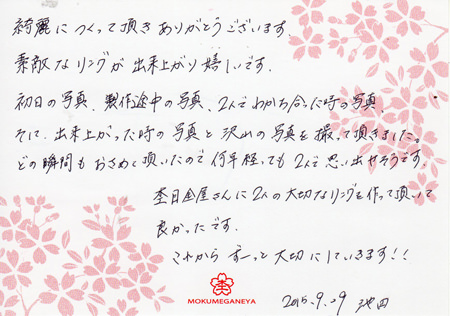 綺麗につくって頂きありがとうございます。
素敵なリングが出来上がり嬉しいです。
初日の写真、製作途中の写真、2人でわかち合った時の写真、
そして、出来上がった時の写真と沢山の写真を撮って頂きました。
どの瞬間もおさめて頂いたので何年経っても2人で思い出せそうです。
杢目金屋さんに2人の大切なリングを作って頂いて
良かったです。
これからずーっと大切にしていきます!!
MOKUMEGANEYA
2015.9.29 池田